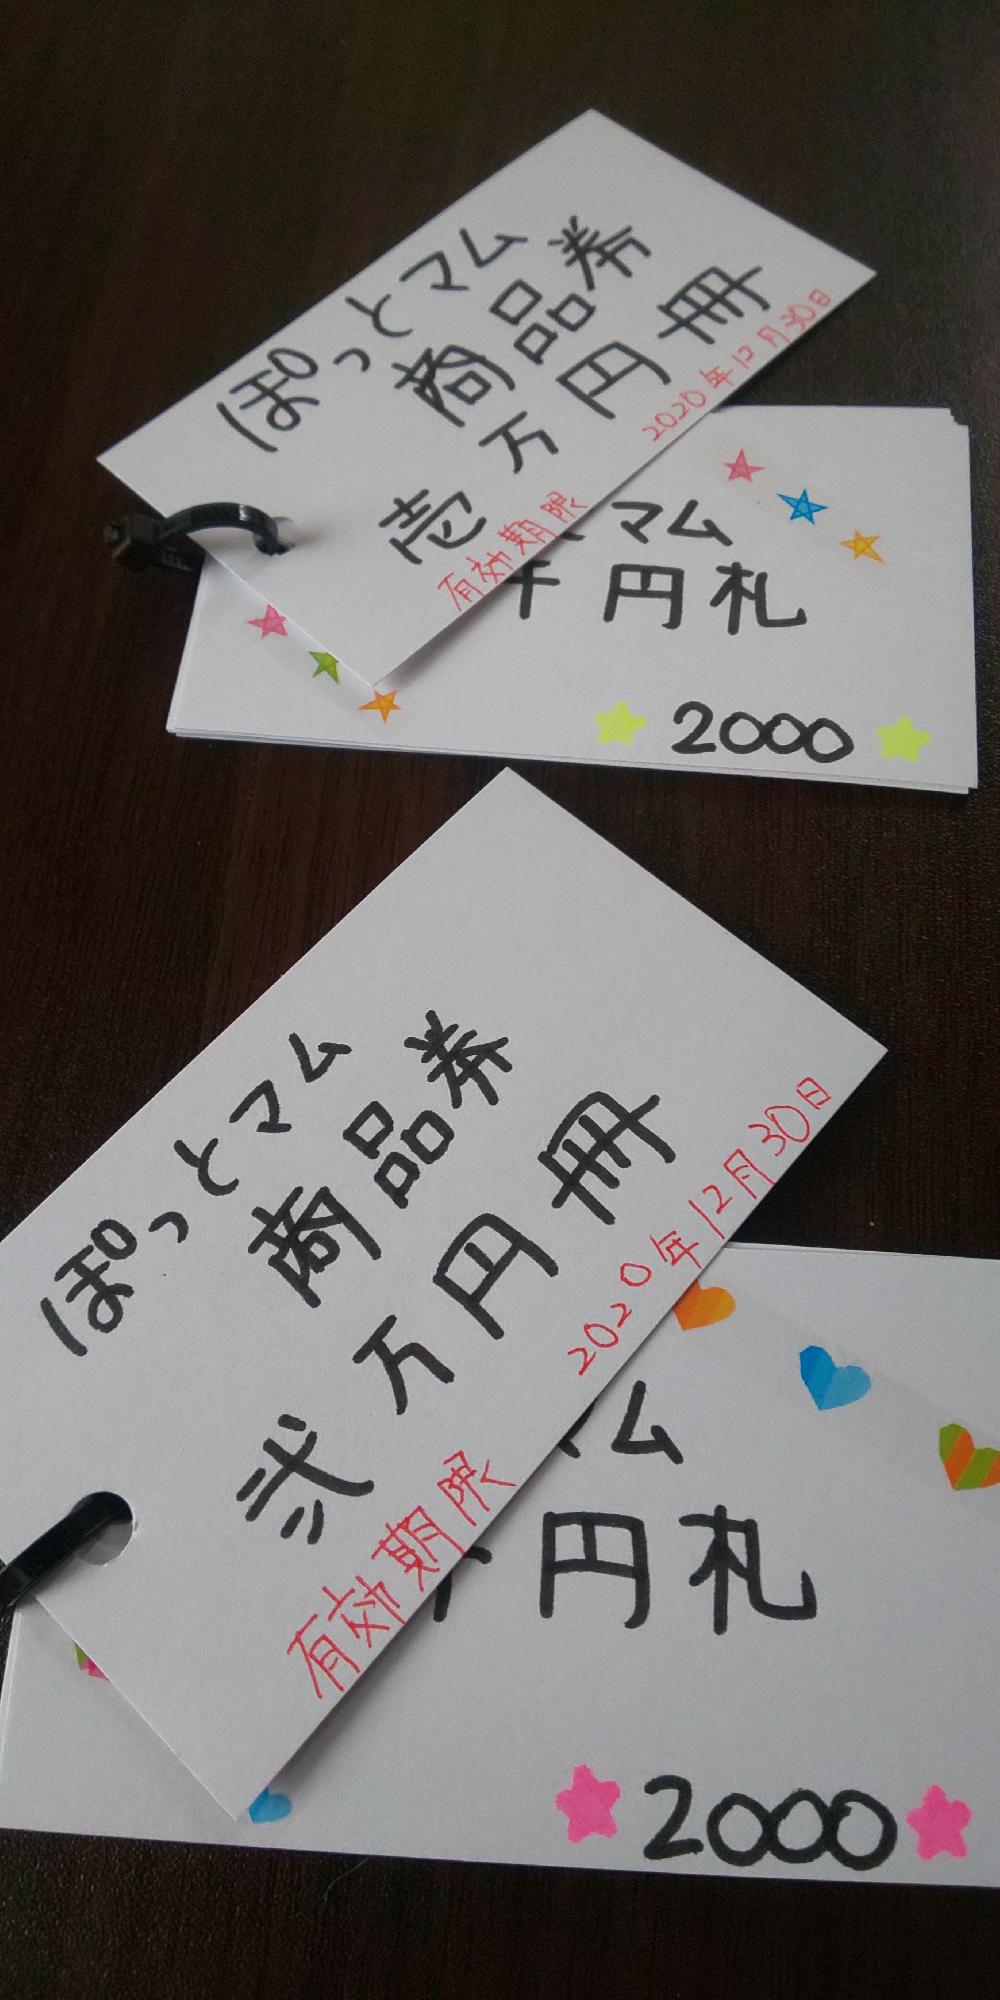 ぽっとマム
商品券
壱万円冊
有効期限 2020年12月30日
マム
千円札
2000
ぽっとマム
商品券
弐万円冊
有効期限 2020年12月30日
ム
円札
2000